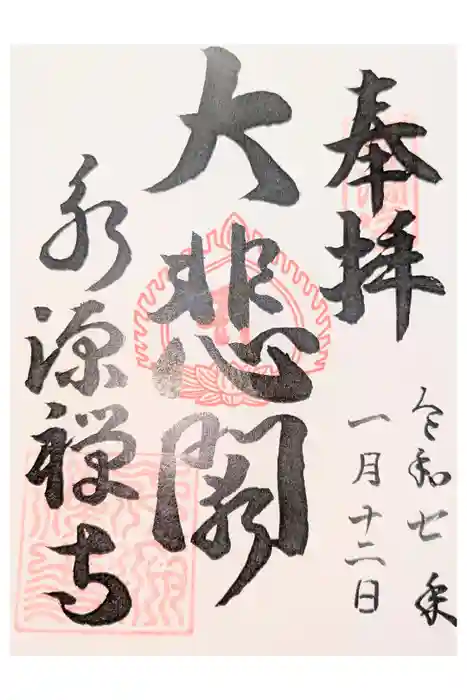 奉拝
令和七年
一月十二日
大悲閣
永源禅寺